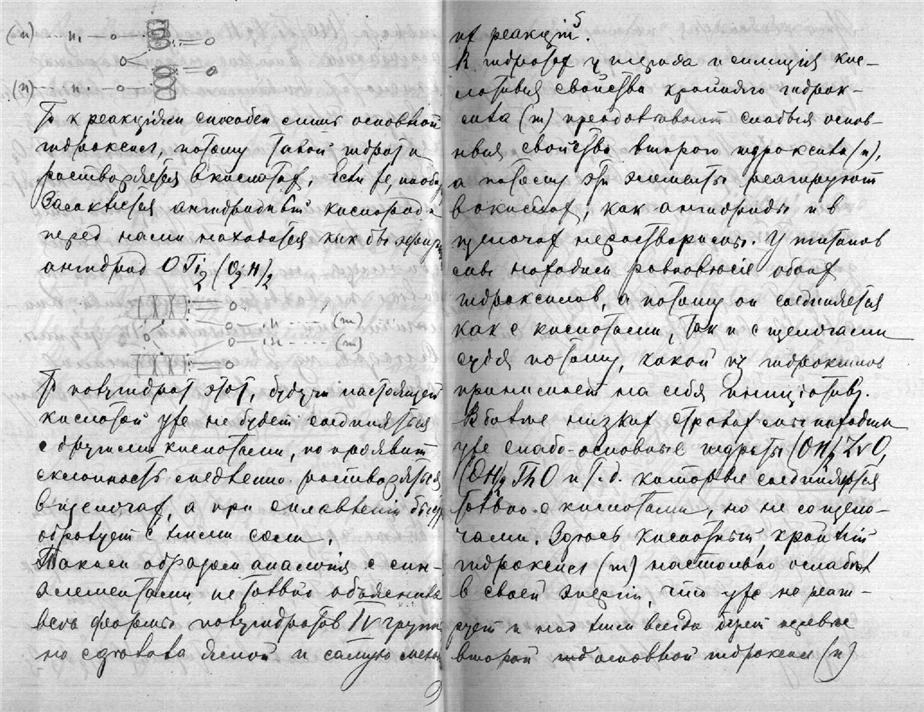 (n) ... н. — о — = о
о
(n) ... н. — о — = о
То к реакциям способен лишь основной
гидроксил, потому такой гидрат и
растворяется в кислотах. Если же
ангидридный кислород и
перед нами находится как бы
ангидрид OTi2(O2H)2
= о
о — н ... (m)
о о — н ... (m)
= о
То полугидрат этот, будучи настоящей
кислотой уже не будет соединяться
с другими кислотами, но проявит
склонность медленно растворяться
в щелочах, а при сплавлении
образует с ними соли.
Таким образом аналогия с
элементами не только объяснила
весь феномен полугидратов IV групп
но сделала ясной и самую
их реакций.
К гидратах углерода и силиция кис-
лотныя свойства крайняго гидрок-
сила (m) преобладают слабыя основ-
ныя свойства второго гидроксила (n),
а потому эти элементы реагируют
в окислах, как ангидриды и в
щелочах нерастворимы. У титанов
мы находим равновесие обоих
гидроксилов, а потому он соединяется
как с кислотами, так и с щелочами
судя потому, какой из гидроксилов
принимает на себя инициативу.
В более низких строках мы находим
уже слабо-основные гидраты (OH)2ZrO,
(OH)2ThO и т.д. которые соединяются
только с кислотами, но не со щело-
чами. Здесь кислотный, крайний
гидроксил (m) настолько ослабел
в своей энергии, что уже не реаги-
рует и над ним всегда берет перевес
второй основной гидроксил (n)